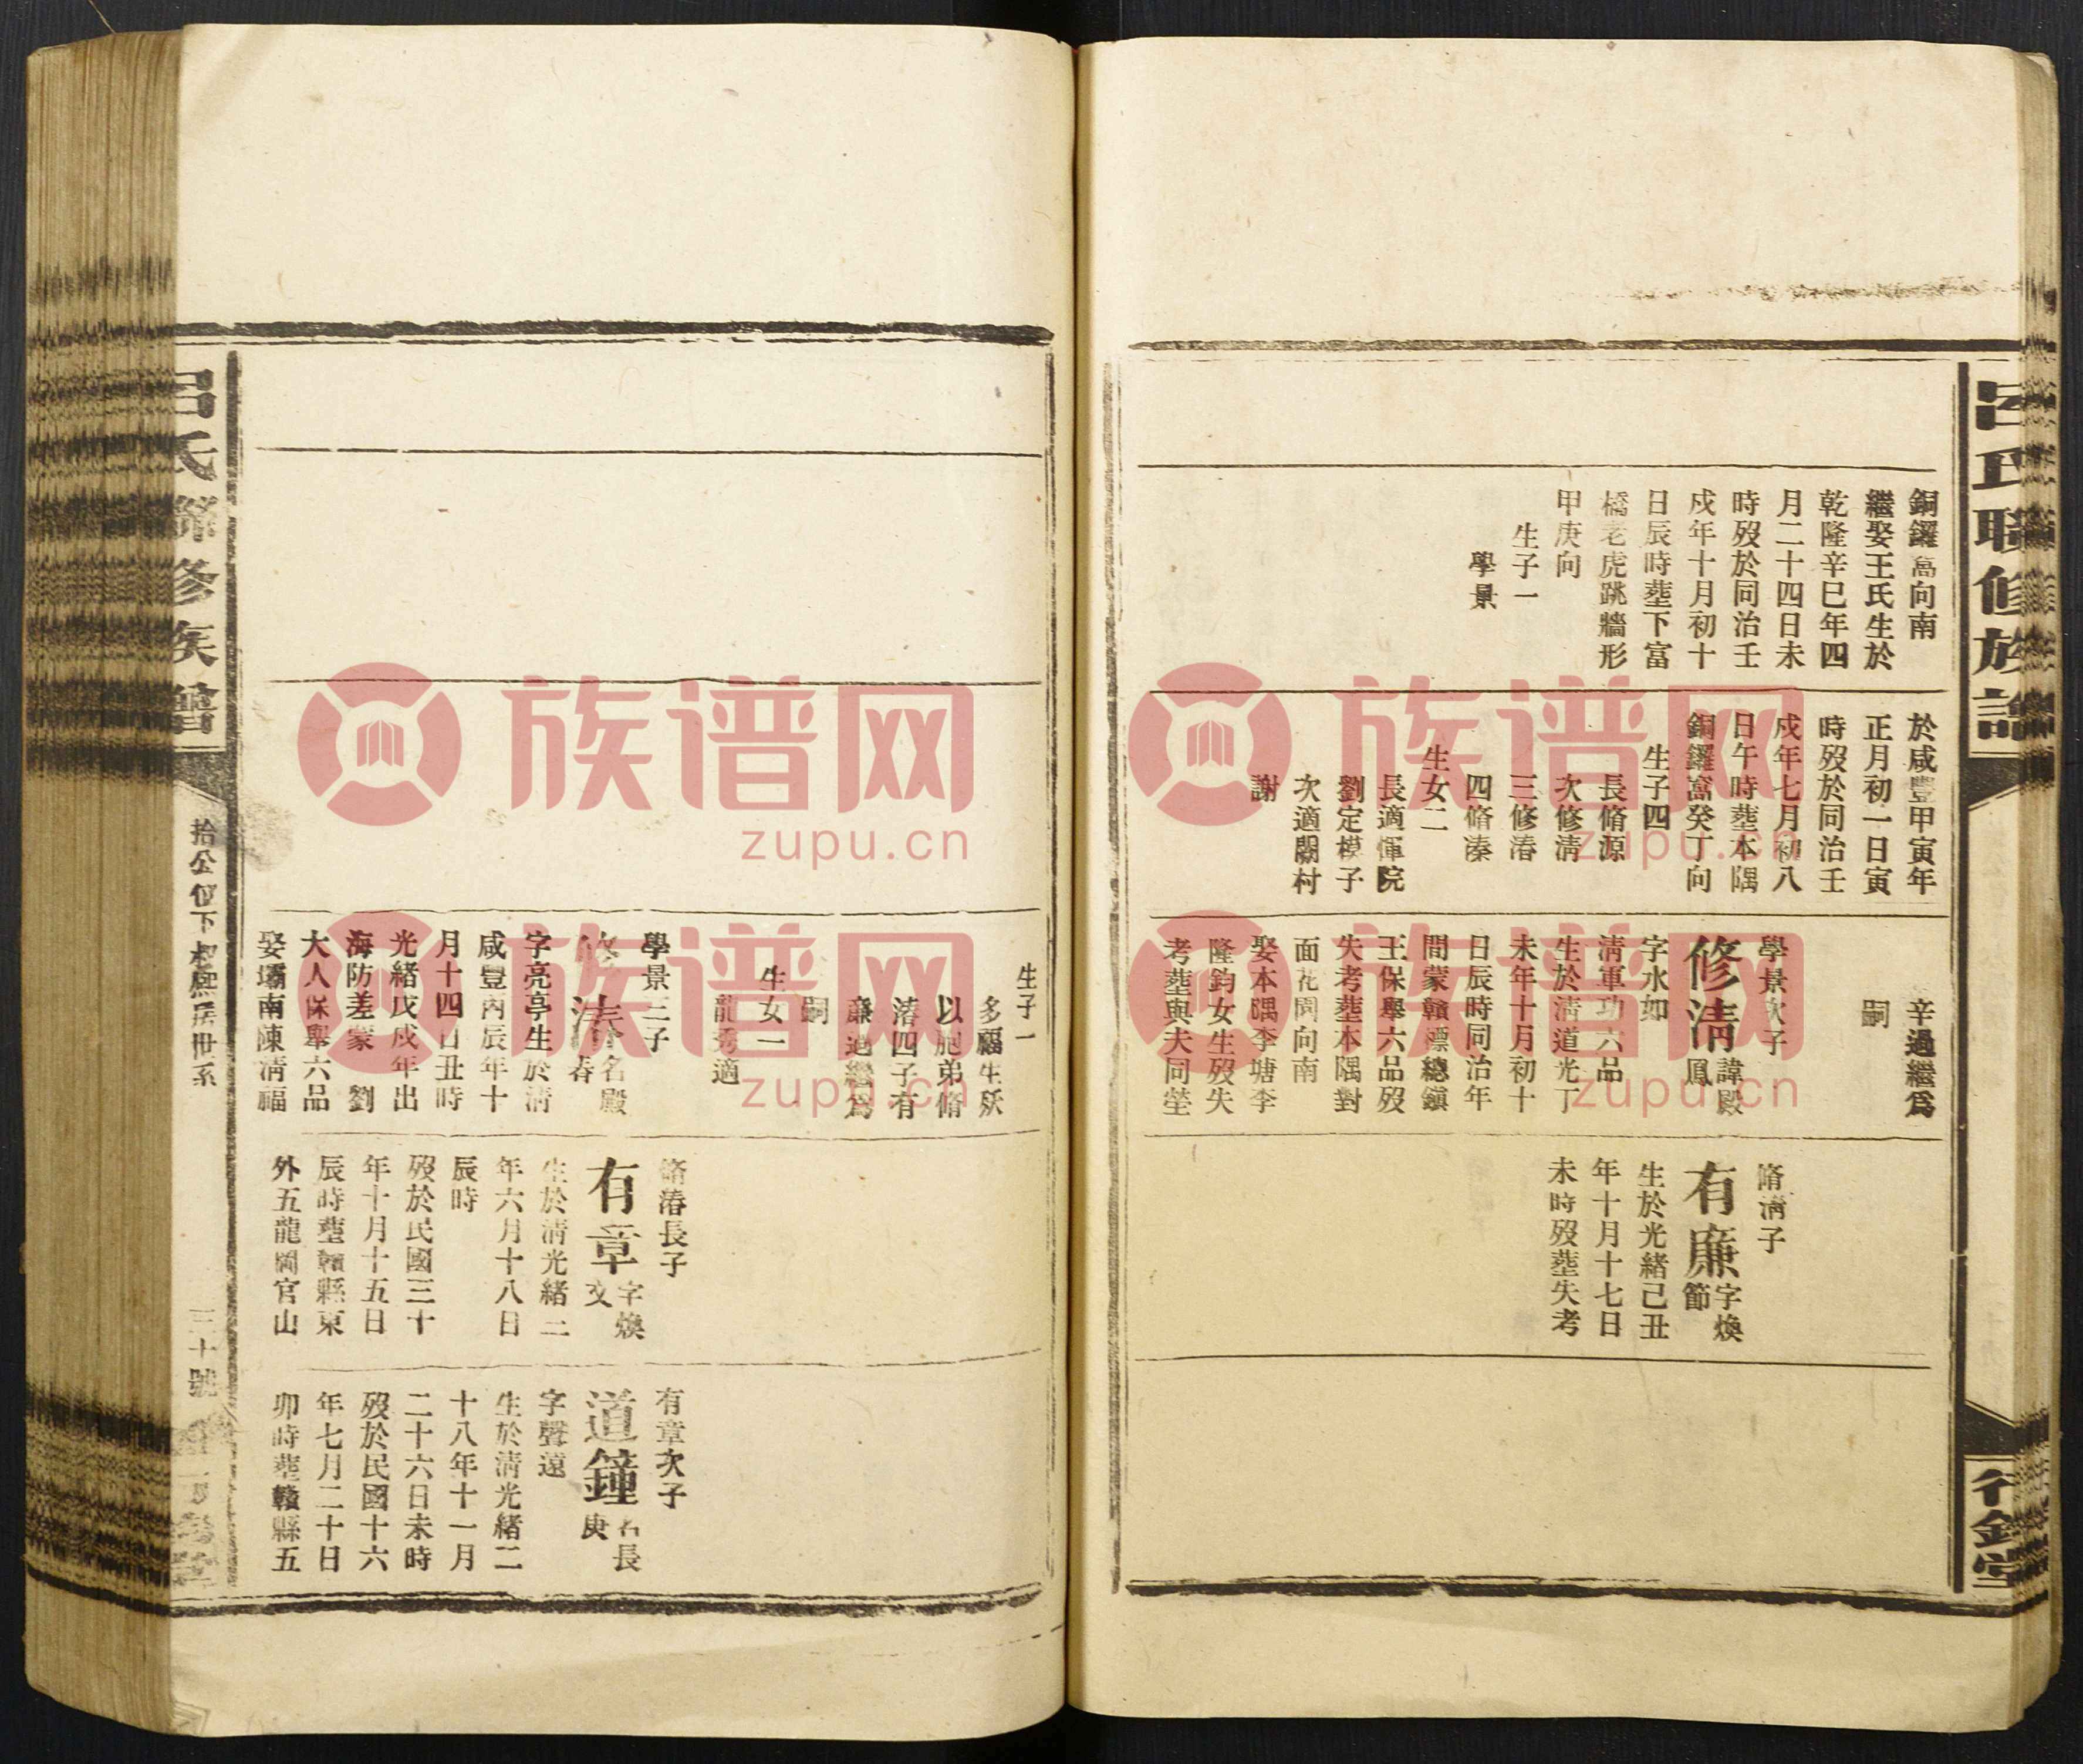 呂氏聯修族譜
銅鑼窩向南
繼娶王氏生於
乾隆辛巳年四
月二十四日未
時歿於同治壬
戍年十月初十
日辰時塟下富
橋老虎跳牆形
甲庚向
生子一
學景
於咸豐甲寅年
正月初一日寅
時歿於同治壬
戍年七月初八
日午時塟本隅
銅鑼窩癸丁向
生子四
長脩源
次修清
三修湷
四脩溱
生女二
長適院
劉定模子
次適村
謝
辛過繼爲
嗣
學景次子
修清諱殿
鳳
字水如
淸軍功六品
生於淸道光丁
未年十月初十
日辰時同治年
間蒙贛標總鎭
王保舉六品歿
失考塟本隅對
面花園向南
娶本隅李塘李
隆鈞女生歿失
考塟與夫同塋
脩淸子
有廉字煥
節
生於光緒己丑
年十月十七日
未時歿塟失考
生子一
多福生殀
以胞弟脩
湷四子有
廉過繼爲
嗣
生女一
龍秀適
學景三子
修湷名殿
春
字亮亭生於淸
咸豐丙辰年十
月十四日丑時
光緒戊戍年出
海防差蒙 劉
大人保舉六品
娶壩南陳淸福
脩湷長子
有章字煥
文
生於淸光緒二
年六月十八日
辰時
歿於民國三十
年十月十五日
辰時塟贛縣東
外五龍岡官山
有章次子
道鐘名長
庚
字聲遠
生於淸光緒二
十八年十一月
二十六日未時
歿於民國十六
年七月二十日
卯時塟贛縣五
呂氏聯修族譜
三十號
族谱网
zupu.cn
族谱网
zupu.cn
族谱网
zupu.cn
族谱网
zupu.cn